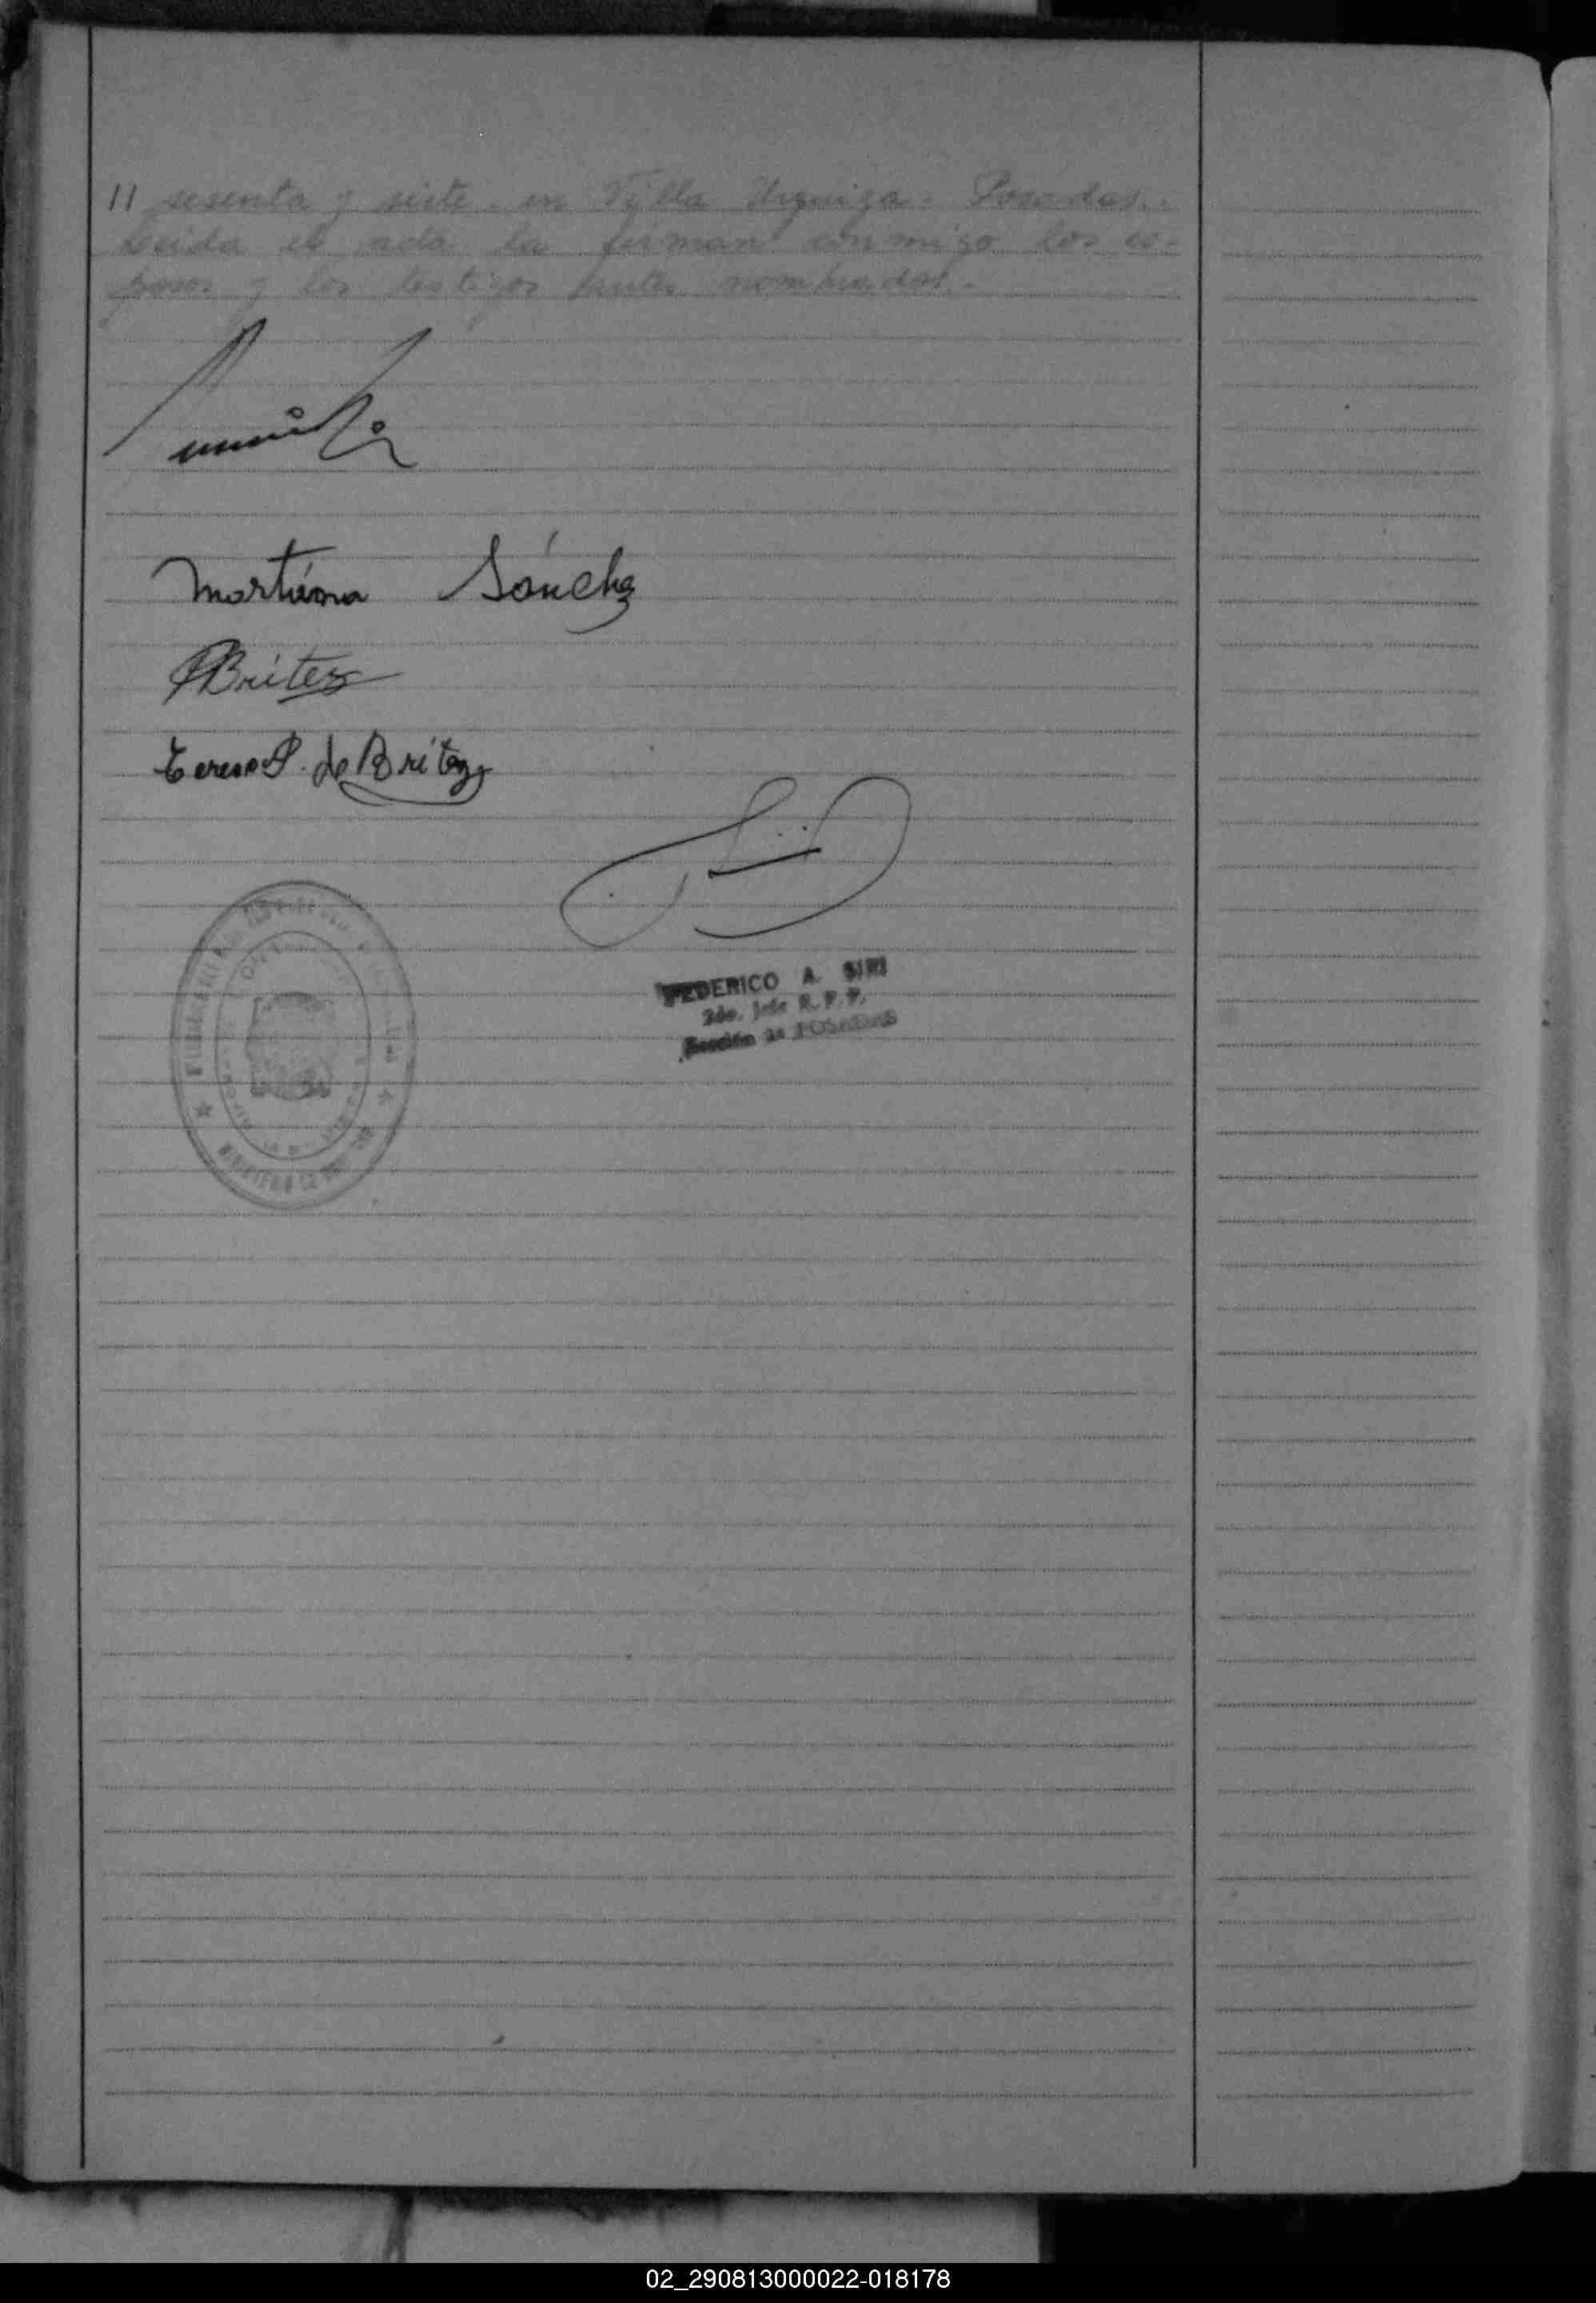 11 sesenta y siete. en Villa Urquiza - Posadas. -
Leida el acta la firman conmigo los es-
posos y los testigos antes nombrados. -
Martina Sánchez
Britez
Teresa S. de Britez
FEDERICO A. SIRI
2do. Jefe R. P. P.
Sección 2a POSADAS
02_290813000022-018178